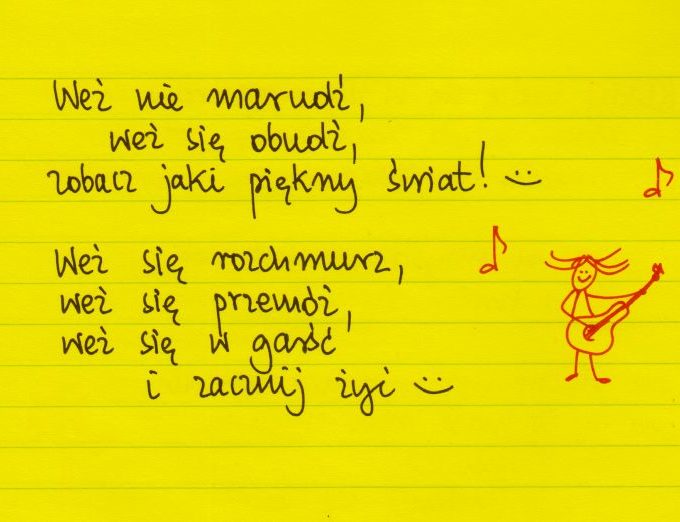 Weź nie marudź,
weź się obudź,
zobacz jaki piękny świat! :)
Weź się rozchmurz,
weź się przemóż,
weź się w garść
i zacznij żyć :)